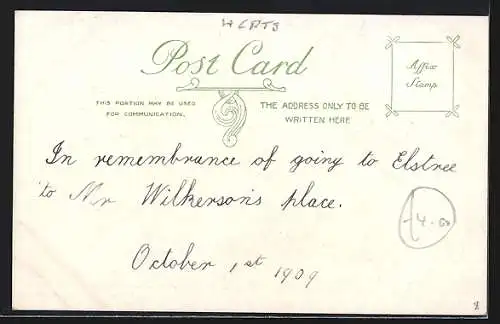 HERTS
Post Card
Affix
Stamp
THIS PORTION MAY BE USED
FOR COMMUNICATION.
THE ADDRESS ONLY TO BE
WRITTEN HERE
In remembrance of going to Elstree
to Mr Wilkerson's place.
£4.00
October 1st 1909